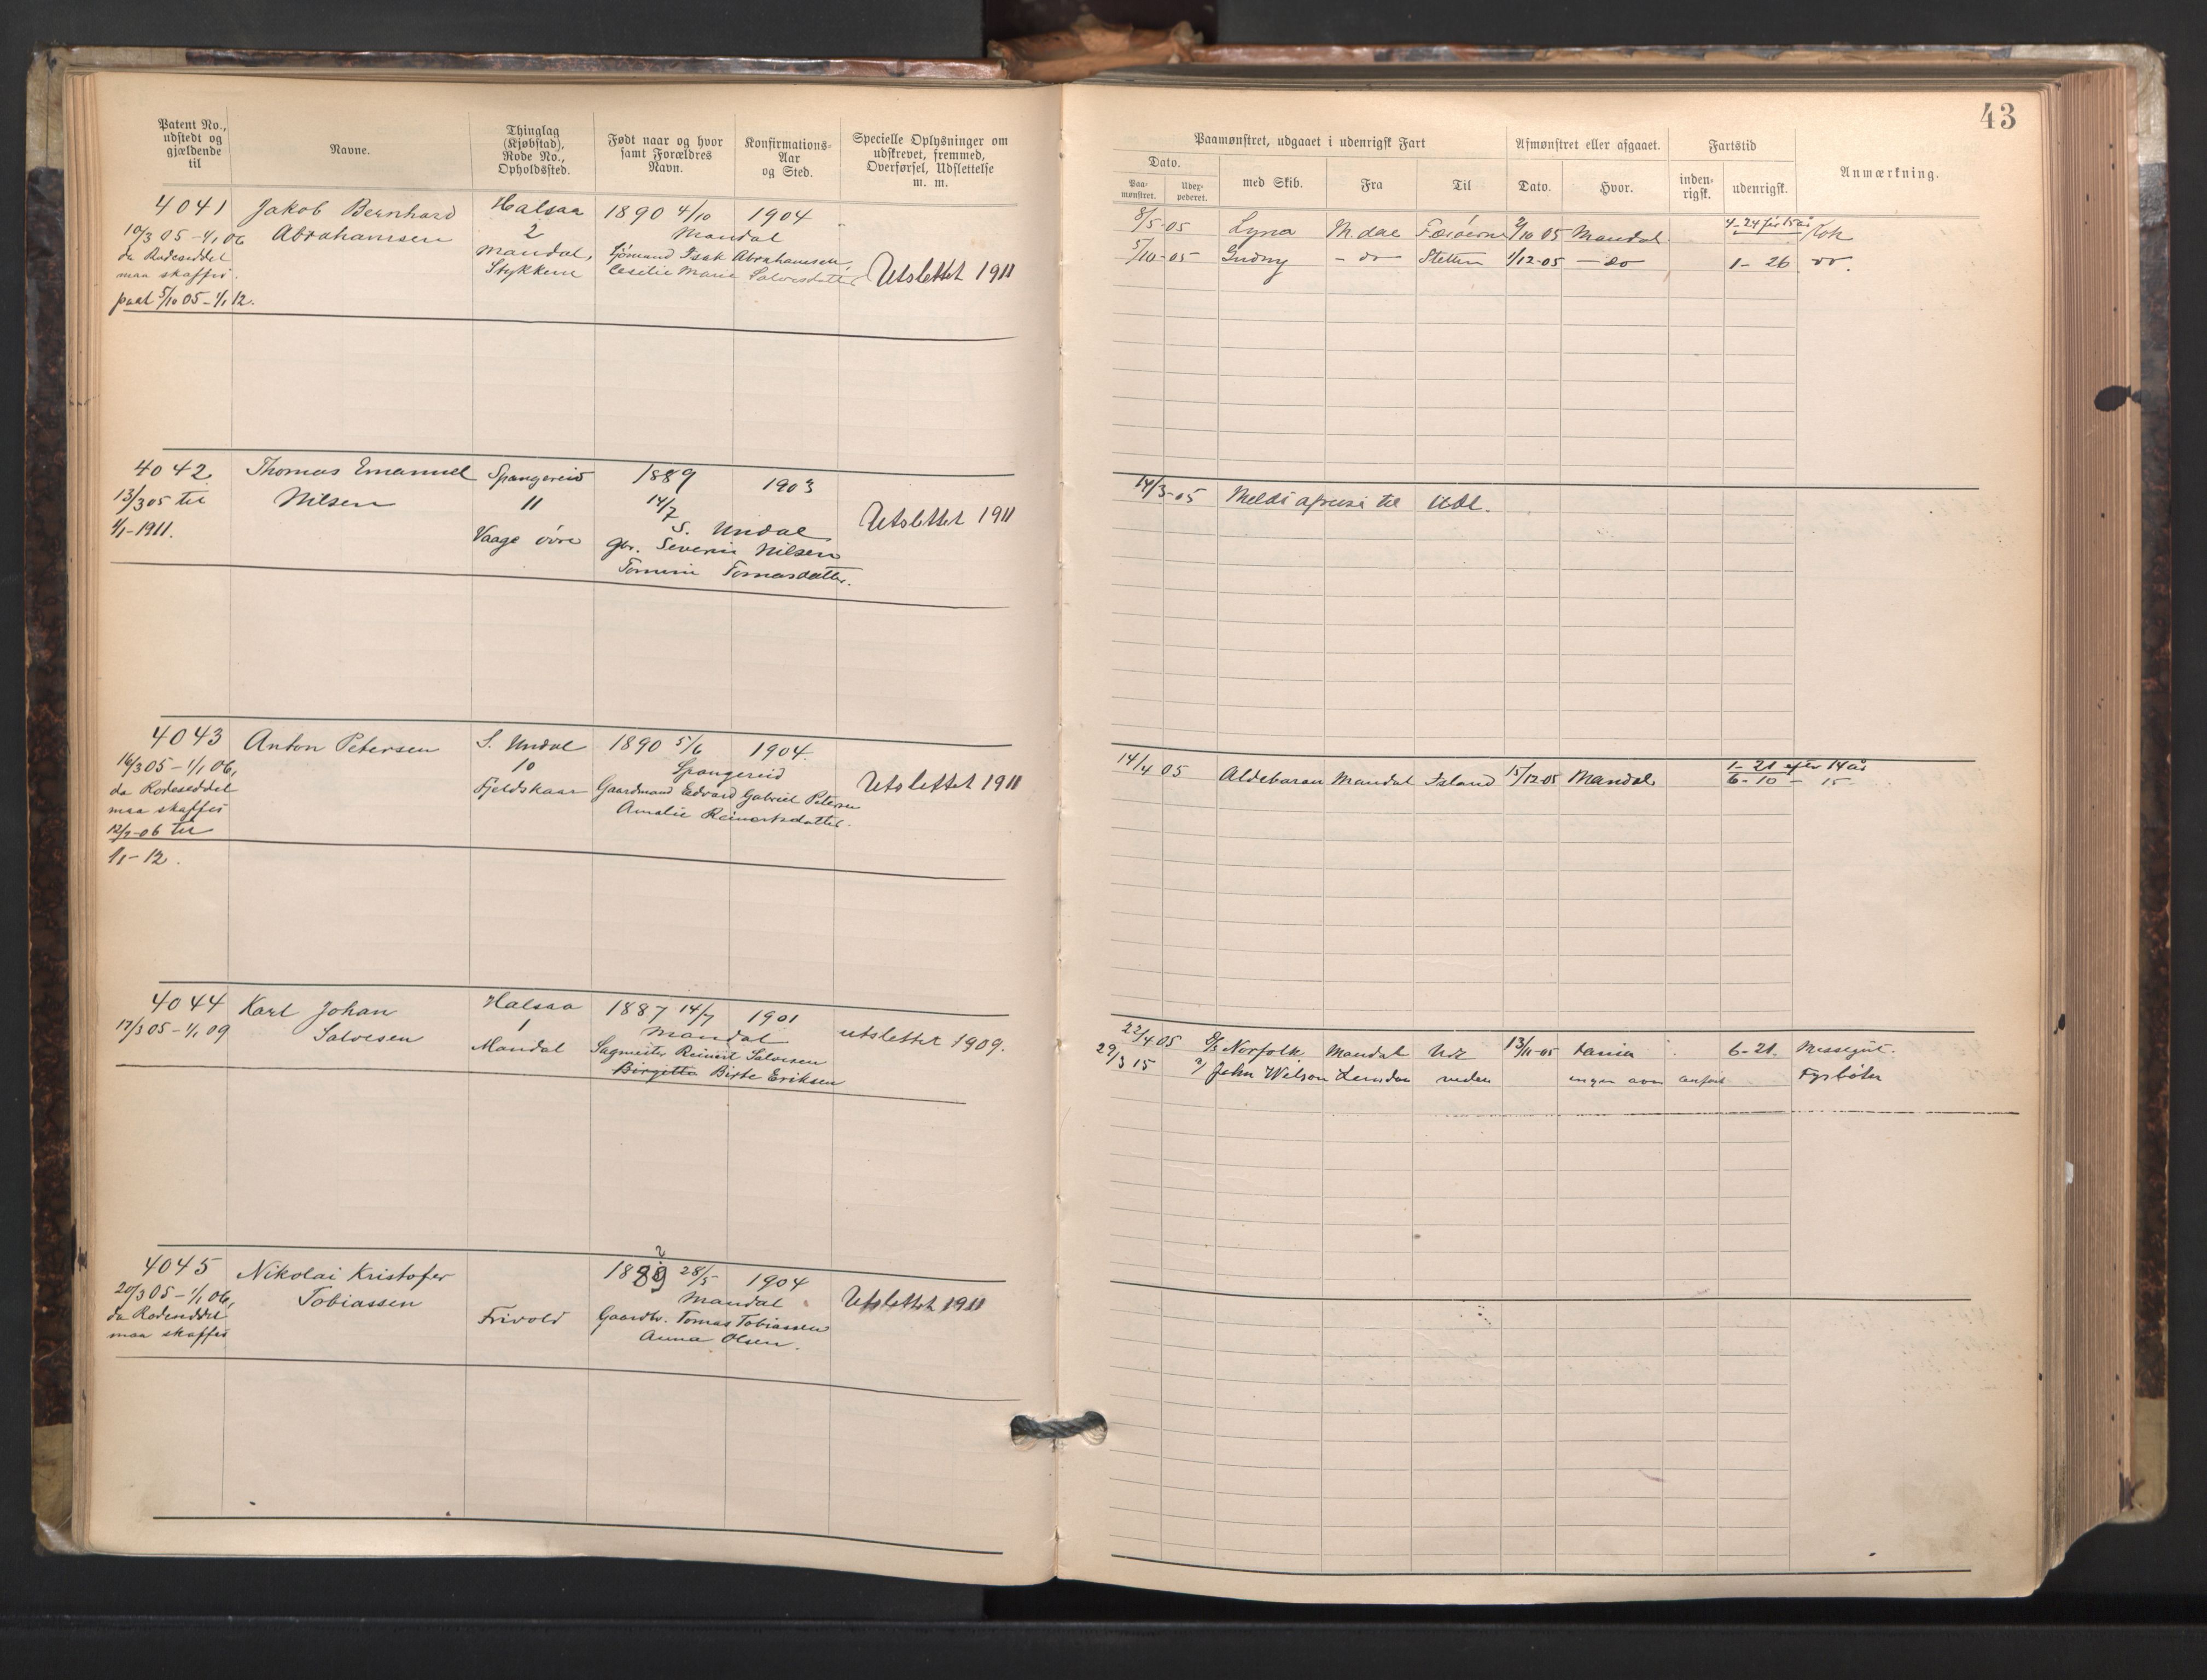 43
Patent No., udstedt og gjældende til
Navne.
Thinglag (Kjøbstad), Rode No., Opholdssted.
Født naar og hvor samt Forældres Navn.
Konfirmations-Aar og Sted.
Specielle Oplysninger om udskrevet, fremmed, Overførsel, Udslettelse m. m.
Paamønstret, udgaaet i udenrigsk Fart
Afmønstret eller afgaaet.
Fartstid
Anmærkning.
Dato.
Paa-mønstret.
Uder-pederet.
med Skib.
Fra
Til
Dato.
Hvor.
inden-rigsk.
udenrigsk.
4041 Jakob Bernhard Halsaa 1890 4/10 1904
10/3 05 - 1/1 06 Abrahamsen 2 Mandal
da Rodeseddel Mandal, Sjømand Isak Abrahamsen,
maa skaffes. Stykkene Cecilie Marie Salvesdatter Utslettet 1911
paal 5/10 05 - 1/1 12.
8/5-05 Lyna M.dal Færøerne 2/10 05 Mandal 4-24 før 15 år Kok
5/10-05 Gudny - do Stettin 1/12-05 - do 1- 26 do.
4042 Thomas Emanuel Spangereid 1889 1903
13/3 05 til Nilsen 11 14/7
1/1-1911. Vaage øvre S. Undal Utslettet 1911
gbr. Severin Nilsen
Tomine Tomasdatter.
14/3-05 Meldt afreist til Udl.
4043 Anton Petersen S. Undal 1890 5/6 1904.
16/3 05 - 1/1 06, 10 Spangereid
da Rodeseddel Fjeldskaar Gaardmand Edvard Gabriel Petersen Utslettet 1911
maa skaffes Amalie Reinertsdatter.
12/2-06 til
1/1-12.
14/4 05 Aldebaran Mandal Island 15/12-05 Mandal 1- 21 efter 14 år
6- 10 - 15
4044 Karl Johan Halsaa 1887 14/7 1901
17/3 05 - 1/1 09 Salvesen 1 Mandal utslettet 1909.
Mandal Sagmester Reinert Salvesen
Birgitta Birte Eriksen
22/4 05 S/S Norfolk Mandal Udl 13/11-05 6-21. Messegut.
29/3 15 John Wilson London ingen Fyrbøter
4045 Nikolai Kristofer 1889 28/5 1904
20/3 05 - 1/1 06, Tobiassen Mandal Utslettet 1911
da Rodeseddel Frivold Gaardbr. Tomas Tobiassen
maa skaffes Anna Olsen.